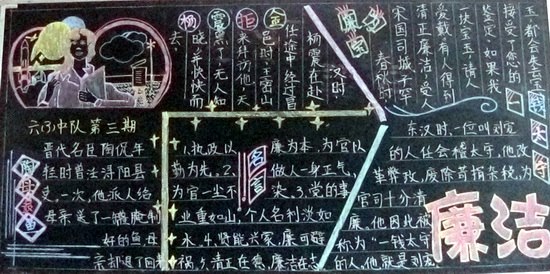 杨震拒金
汉时
杨震在赴
任途中经过昌
邑时，王密山
来拜访他，天
黑了无人知
晓，并快快而
去
廉
春秋时
宋国司城子罕
清正廉洁，受人
爱戴有人得到
一块宝玉，请人
鉴定，如果我
接受了您的
玉，都会失去宝
六(3)中队第三期
晋代名臣陶侃年
轻时曾注浔阳县
吏，一次，他派人给
母亲送了一罐腌制
好的鱼，母
亲却退了回来
名言
1.执政以廉为本，为官以
勤为先。2.做人一身正气，
为官一尘不染。3.党的事
业重如山，个人名利淡如
水。4.贤能兴家，廉可避
祸。5.清正在德，廉洁在志
一钱太守
东汉时，一位叫刘宠
的人任会稽太守，他改
革弊政，废除苛捐杂税，为
官司十分清
廉。他因此被
称为“一钱太守”
的人，他就是刘宠
廉洁